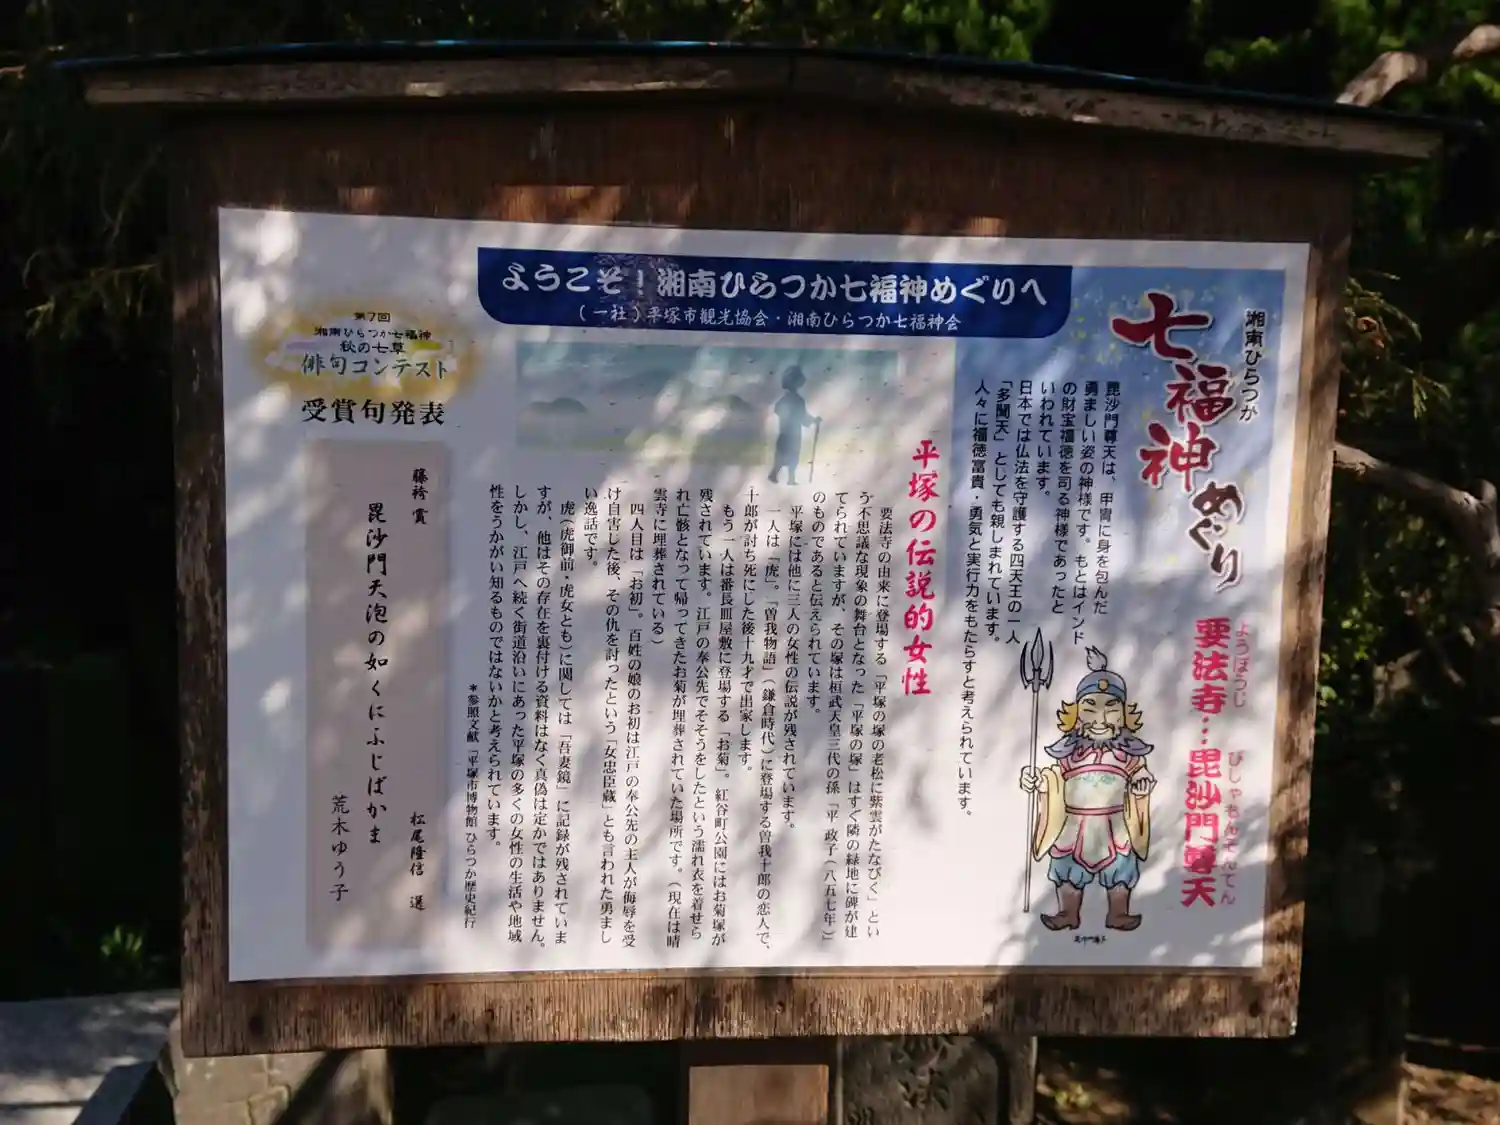 ようこそ！湘南ひらつか七福神めぐりへ
（一社）平塚市観光協会・湘南ひらつか七福神会
湘南ひらつか
七福神めぐり
ようぼうじ
要法寺…毘沙門尊天
びしゃもんそんてん
毘沙門尊天は、甲冑に身を包んだ
勇ましい姿の神様です。もとはインド
の財宝福徳を司る神様であったと
いわれています。
日本では仏法を守護する四天王の一人
「多聞天」としても親しまれています。
人々に福徳富貴・勇気と実行力をもたらすと考えられています。
平塚の伝説的女性
要法寺の由来に登場する「平塚の塚の老松に紫雲がたなびく」とい
う不思議な現象の舞台となった「平塚の塚」はすぐ隣の緑地に碑が建
てられていますが、その塚は桓武天皇三代の孫「平 政子（八五七年）」
のものであると伝えられています。
平塚には他に三人の女性の伝説が残されています。
一人は「虎」。「曽我物語」（鎌倉時代）に登場する曽我十郎の恋人で、
十郎が討ち死にした後十九才で出家します。
もう一人は番長皿屋敷に登場する「お菊」。紅谷町公園にはお菊塚が
残されています。江戸の奉公先でそそうをしたという濡れ衣を着せら
れ亡骸となって帰ってきたお菊が埋葬されていた場所です。（現在は晴
雲寺に埋葬されている）
四人目は「お初」。百姓の娘のお初は江戸の奉公先の主人が侮辱を受
け自害した後、その仇を討ったという「女忠臣蔵」とも言われた勇まし
い逸話です。
虎（虎御前・虎女とも）に関しては「吾妻鏡」に記録が残されていま
すが、他はその存在を裏付ける資料はなく真偽は定かではありません。
しかし、江戸へ続く街道沿いにあった平塚の多くの女性の生活や地域
性をうかがい知るものではないかと考えられています。
＊参照文献「平塚市博物館 ひらつか歴史紀行
第7回
湘南ひらつか七福神
秋の七草
俳句コンテスト
受賞句発表
藤袴賞
松尾隆信 選
毘沙門天泡の如くにふじばかま
荒木ゆう子